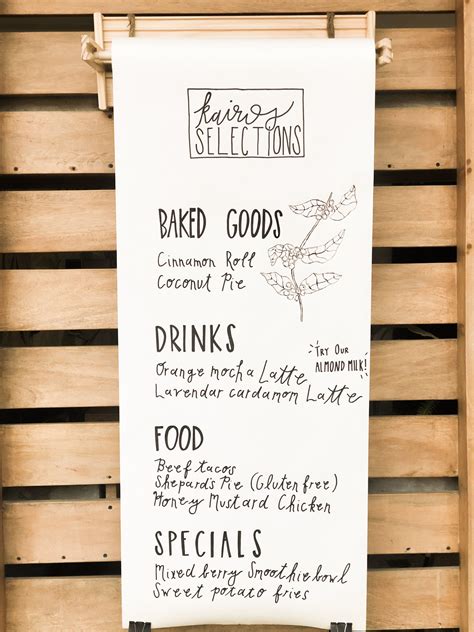 kairos
SELECTIONS
BAKED GOODS
Cinnamon Roll
Coconut Pie
DRINKS
TRY OUR
ALMOND MILK!
Orange mocha Latte
Lavendar cardamom Latte
FOOD
Beef tacos
Shepard's Pie (Gluten free)
Honey Mustard Chicken
SPECIALS
Mixed berry Smoothie bowl
Sweet potato fries